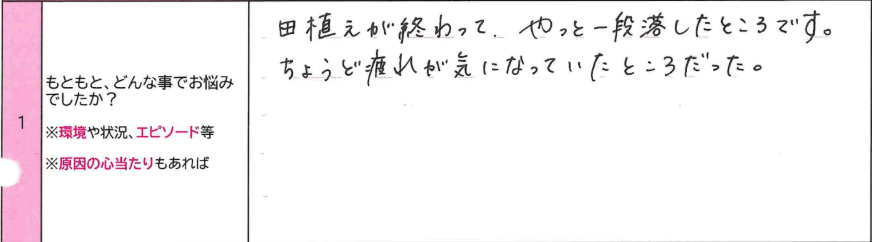 1
もともと、どんな事でお悩み
でしたか？
※環境や状況、エピソード等
※原因の心当たりもあれば
田植えが終わって、やっと一段落したところです。
ちょうど疲れが気になっていたところだった。